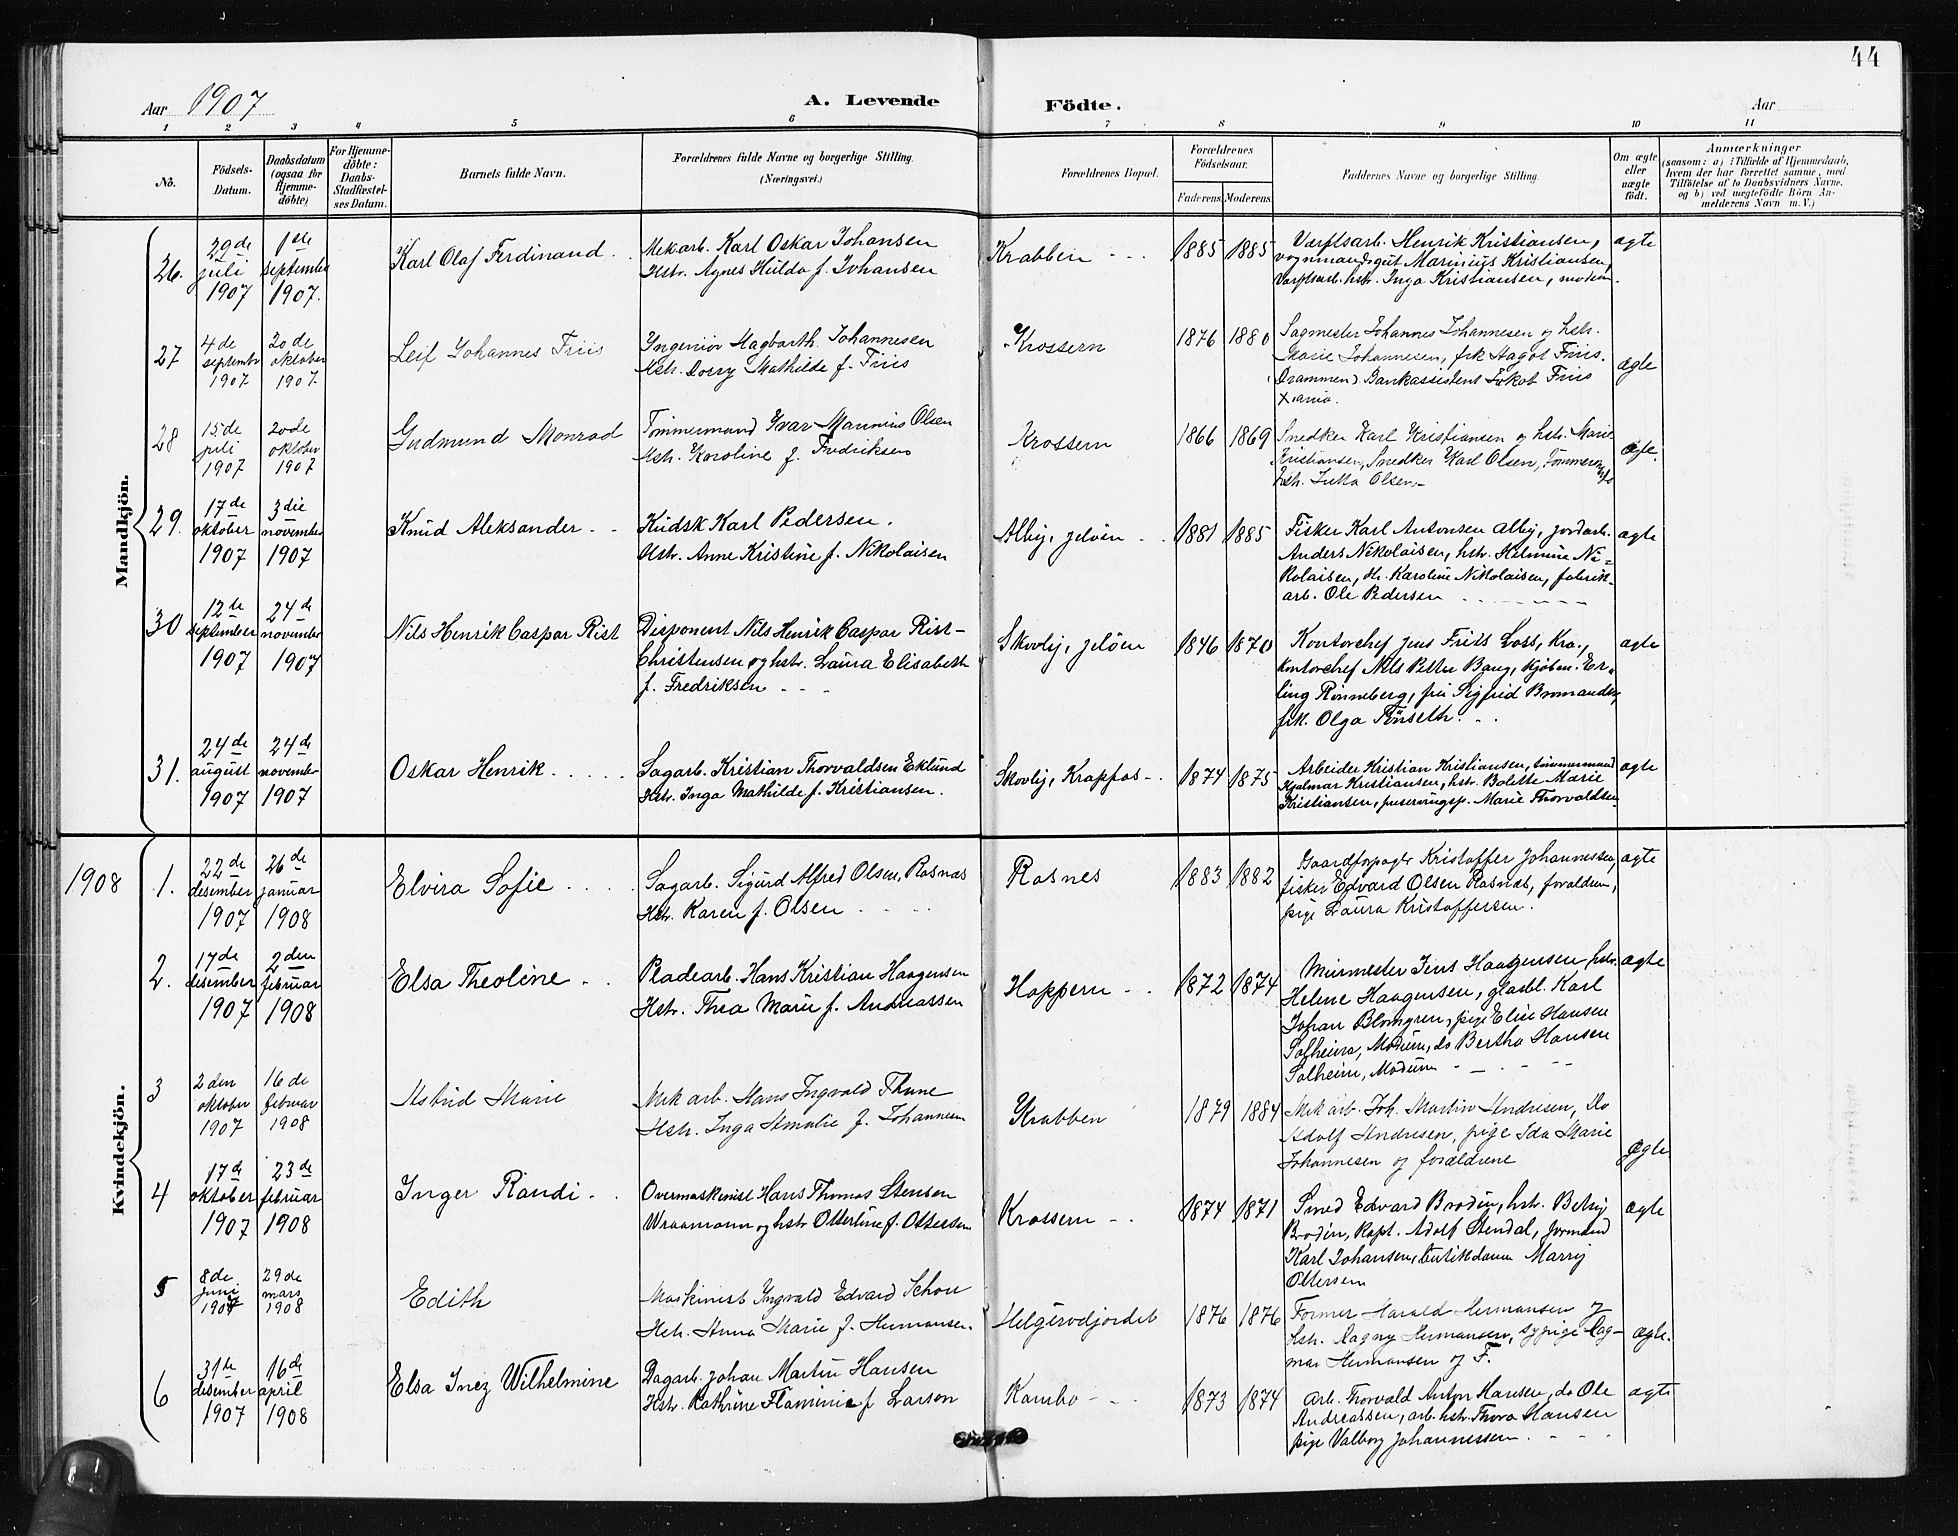 44
Aar 1907
A. Levende
Födte.
Aar
1 2 3 4 5 6 7 8 9 10 11
No.
Födsels-
Datum.
Daabsdatum
(ogsaa for
Hjemme-
döbte)
For Hjemme-
döbte:
Daabs-
Stadfæstel-
ses Datum.
Barnets fulde Navn.
Forældrenes fulde Navne og borgerlige Stilling.
(Næringsvei.)
Forældrenes Bopæl.
Forældrenes
Födselsaar.
Faderens Moderens
Faddernes Navne og borgerlige Stilling.
Om ægte
eller
uægte
födt.
Anmærkninger
(saasom: a) i Tilfælde af Hjemmedaab,
hvem der har forrettet samme, med
Tilföielse af to Daabsvidners Navne.
og b) ved uægtefödte Börn An-
melderens Navn m. V.)
Mandkjön.
26.
29de
juli
1907
1ste
september
1907.
Karl Olaf Ferdinand
Mek arb. Karl Oskar Johansen
Hstr. Agnes Hulda f. Johansen
Krabben
1885 1885
Værftsarb. Henrik Kristiansen,
vognmandsgut Marinius Kristiansen,
Værftsarb. hstr. Inga Kristiansen, moderen.
ægte
27
4de
septembr
1907
20de
oktober
1907.
Leif Johannes Friis
Ingeniör Hagbarth Johannesen
Hstr. Dorry Mathilde f. Friis
Krossern
1876 1880
Sagmester Johannes Johannesen og hstr.
Marie Johannesen, frk Hagot Friis.
(Drammen). Bankassistent Jakob Friis
Xiania.
ægte
28
15de
juli
1907
20de
oktober
1907
Gudmund Monrad
Tömmermand Ivar Marinius Olsen
Hstr. Karoline f. Fredriksen
Krossern
1866 1869
Snedker Karl Kristiansen og hstr. Marie
Kristiansen, Snedker Karl Olsen,
hstr. Jutta Olsen.
ægte.
29.
17de
oktober
1907
3die
november
1907
Knud Aleksander
Kudsk Karl Pedersen.
Hstr. Anne Kristine f. Nikolaisen
Alby, jelöen
1881 1885
Fisker Karl Antonsen Alby, jordarb.
Anders Nikolaisen, hstr. Helmine Ni-
kolaisen, do. Karoline Nikolaisen, fabrik-
arb. Ole Pedersen
ægte
30
12te
september
1907
24de
november
1907
Nils Henrik Caspar Rist
Disponent Nils Henrik Caspar Rist-
Christensen og hstr. Laura Elisabeth
f. Fredriksen
Skovly, jelöen
1846 1870
Kontorchef Jens Friis Loss, Kra.,
kontorchef Nils Petter Bang, Kjöben. Er-
ling Rönneberg, fru Sigfrid Bromander,
frk. Olga Tönseth.
ægte
31.
24de
august
1907
24de
november
1907
Oskar Henrik
Sagarb. Kristian Thorvaldsen Eklund
Hstr. Inga Mathilde f. Kristiansen.
Skovly, Krappfos
1874 1875
Arbeider Kristian Kristiansen, tömmermand
Hjalmar Kristiansen, hstr. Bolette Marie
Kristiansen, Marie Thorvaldsen
ægte
1908
Kvindekjön.
1.
22de
desember
1907
26de
januar
1908
Elvira Sofie
Sagarb. Sigurd Alfred Olsen, Rosnæs
Hstr. Karen f. Olsen
Rosnes
1883 1882
Gaardforpagter Kristoffer Johannessen,
fisker Edvard Olsen Rosnæs, foraldrene,
pige Laura Kristoffersen.
ægte
2.
17de
desember
1907
2den
februar
1908
Elsa Theoline
Pladearb. Hans Kristian Haagensen
Hstr. Thea Marie f. Andreassen
Hoppern
1872 1874
Murmester Jens Haagensen, hstr.
Helene Haagensen, glasbl. Karl
Johan Blomgren, pige Elise Hansen
Solheim, Modum, do Bertha Hansen
Solheim, Modum
ægte
3
2den
oktober
1907
16de
februar
1908
Astrid Marie
Mek arb. Hans Ingvald Thune
Hstr. Inga Amalie f. Johannesen
Krabben
1879 1884
Mek arb. Joh. Martin Andresen, Do
Adolf Andresen, pige Ida Marie
Johannesen og forældrene
ægte
4
17de
oktober
1907
23de
februar
1908
Inger Randi
Overmaskinist Hans Thomas Stensen
Wraamann og hstr Otterline f. Ottersen
Krossern
1874 1871
Smed Edvard Brodin, hstr. Betsy
Brodin, Kapt. Adolf Stendal, formand
Karl Johansen, butikdame Marry
Ottersen
ægte
5
8de
juni
1907
29de
mars
1908
Edith
Maskinist Ingvald Edvard Schou
Hstr. Anna Marie f. Hermansen.
Helgerödjordet
1876 1876
Former Harald Hermansen og
hstr. Dagny Hermansen, sypige Dag-
mar Hermansen og F.
ægte.
6
31te
desember
1907
16de
april
1908
Elsa Inez Wilhelmine
Dagarb. Johan Martin Hansen
Hstr. Kathrine Flaminie f Larson
Kambo
1873 1874
Arb. Thorvald Anton Hansen, do Ole
Andreassen, arb. hstr. Thora Hansen
pige Valborg Johannessen.
ægte